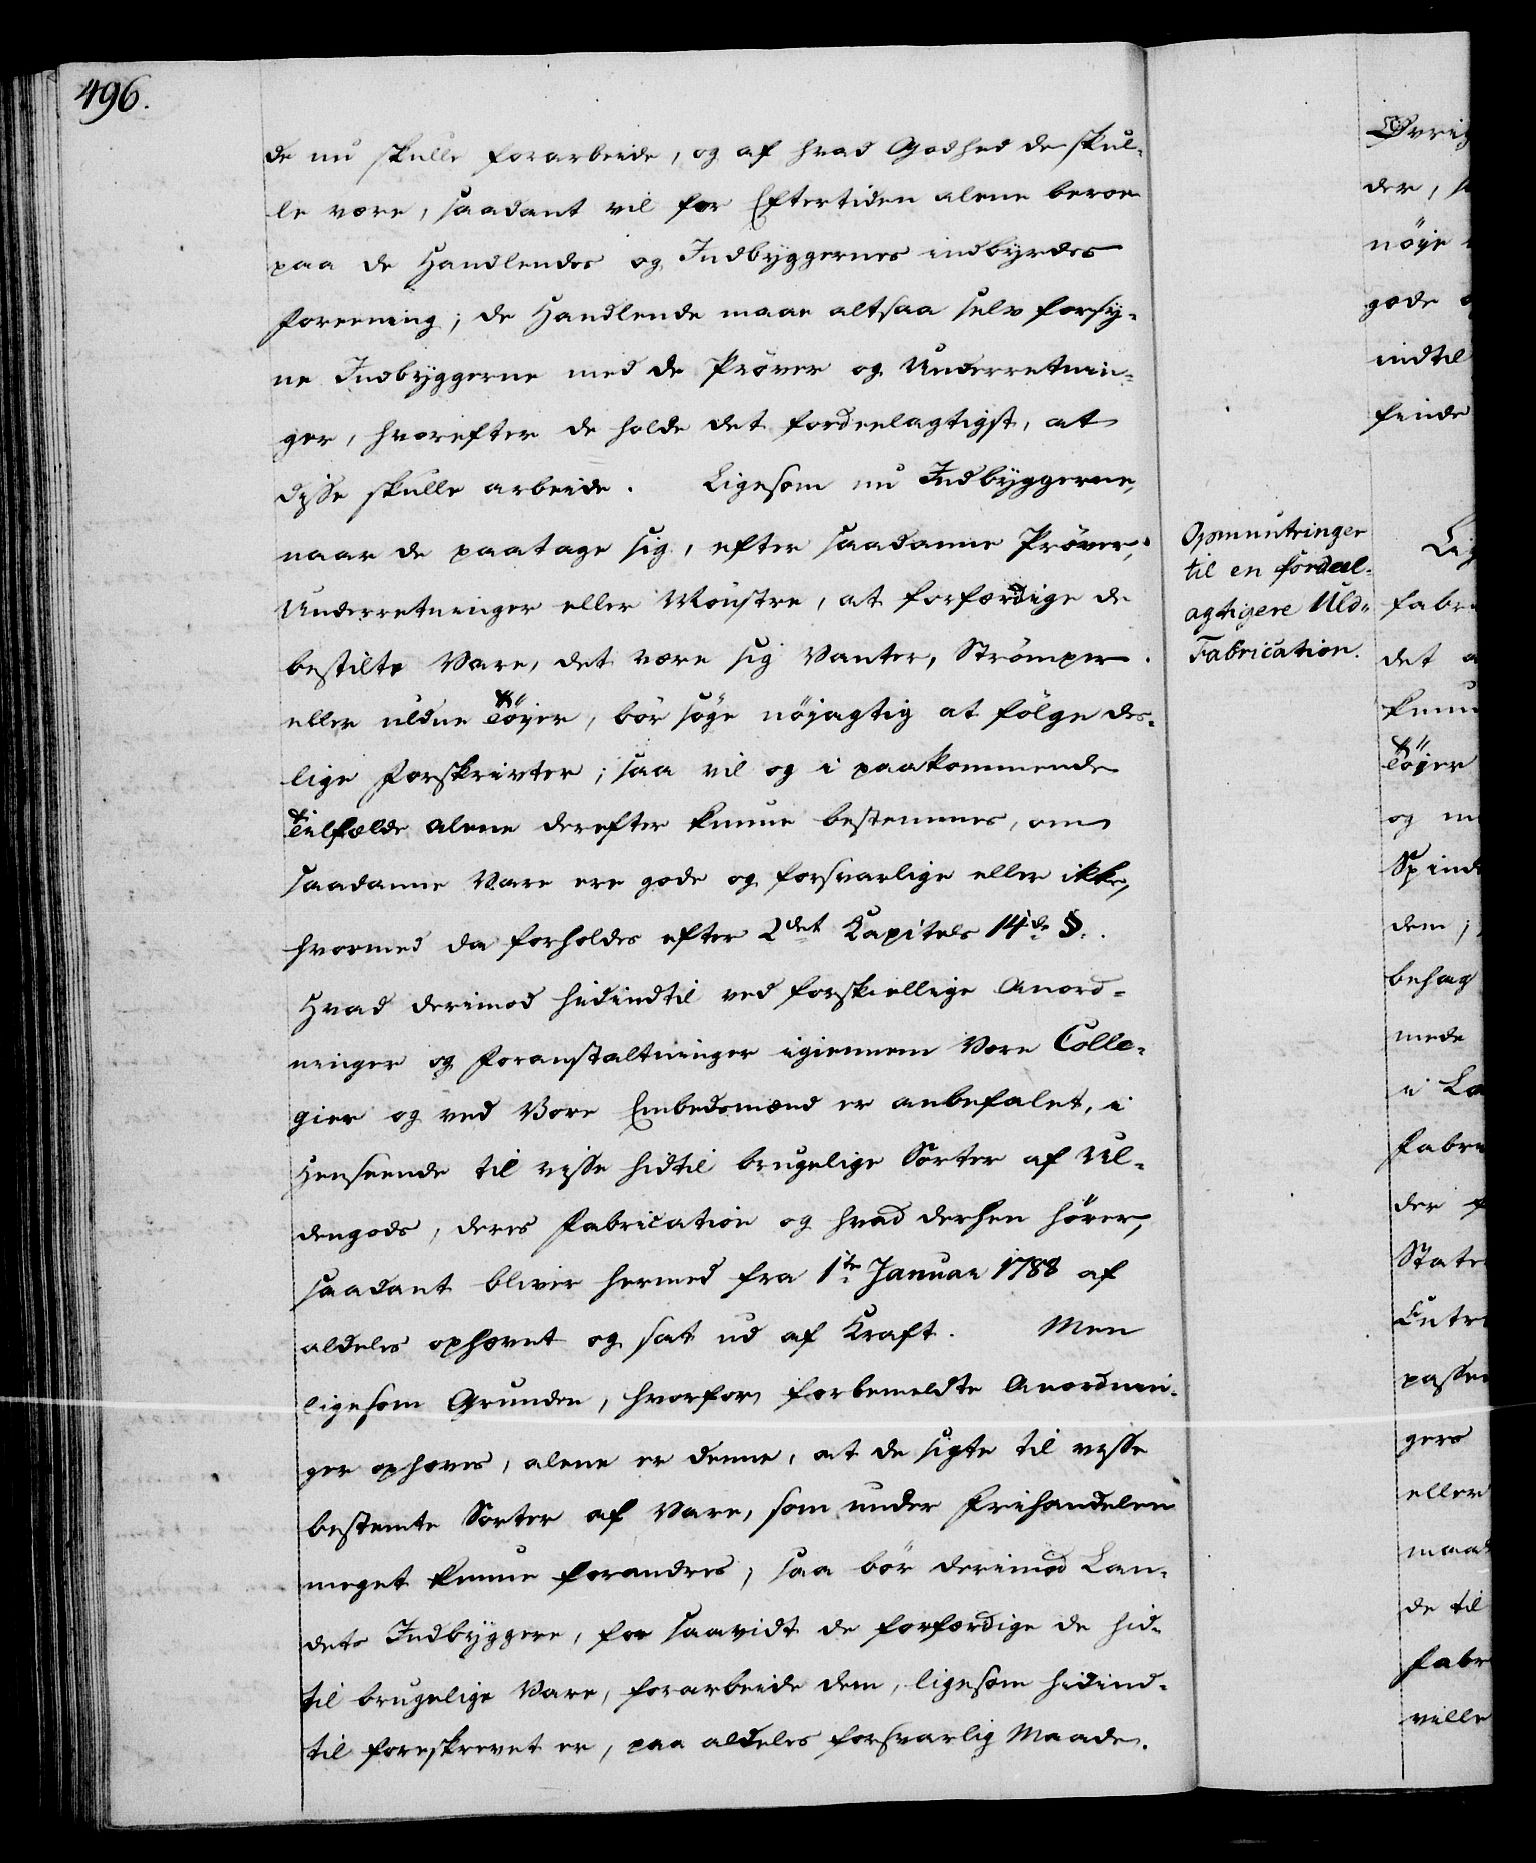 496.
de nu skulle forarbeide, og af hvad Godhed de skul-
le være, saadant vil for Eftertiden alene beroe
paa de Handlendes og Indbyggernes indbyrdes
Foreening; de Handlende maae altsaa selv forsy-
ne Indbyggerne med de Prøver og Underretnin-
ger, hvorefter de holde det fordeelagtigst, at
disse skulle arbeide. Ligesom nu Indbyggerne,
naar de paatage sig, efter saadanne Prøver,
Underretninger eller Mønstre, at forfærdige de
bestilte Vare, det være sig Vanter, Strømper
eller uldne Tøjer, bør søge nøjagtig at følge des-
lige Forskrivter; saa vil og i paakommende
Tilfælde alene derefter kunne bestemmes, om
saadanne Vare ere gode og forsvarlige eller ikke,
hvormed da forholdes efter 2det Kapitels 14de §.
Hvad derimod hidindtil ved forskiellige Anord-
ninger og Foranstaltninger igiennem Vore Colle-
gier og ved Vore Embedsmænd er anbefalet, i
Henseende til visse hidtil brugelige Sorter af Ul-
dengods, deres Fabrication og hvad derhen hører,
saadant bliver hermed fra 1te Januar 1788 af
aldeles ophævet og sat ud af Kraft. Men
ligesom Grunden, hvorfor forbemeldte Anordnin-
ger ophæves, alene er denne, at de sigte til visse
bestemte Sorter af Vare, som under Frihandelen
meget kunne forandres, saa bør derimod Lan-
dets Indbyggere, for saavidt de forfærdige de hid-
til brugelige Vare, forarbeide dem, ligesom hidind-
til foreskrevet er, paa aldeles forsvarlig Maade.
Opmuntringer
til en fordeel-
agtigere Uld-
Fabrication.
Øvrig
der, s
nøje
gode
indtil
finde
Lig
Fabri
det a
kunn
Tøjer
og m
Spind
dem;
behag
mede
i La
Fabri
der f
State
Entre
passe
gers
eller
maad
de til
Fabr
ville